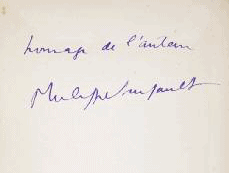 homage de l'auteur
Philippe Soupault